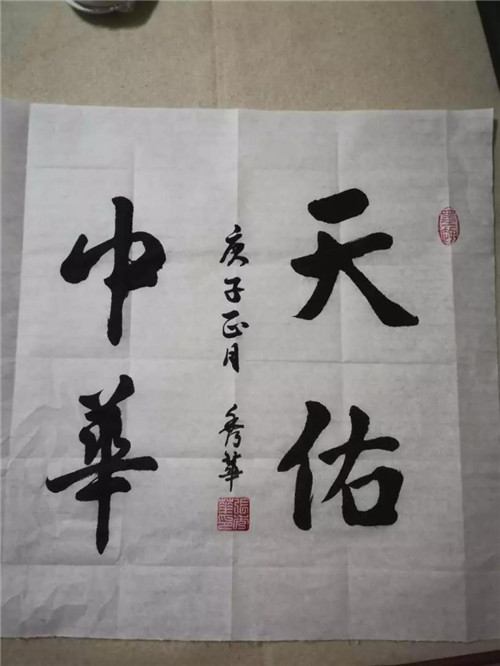 天佑
中華
庚子正月 秀華